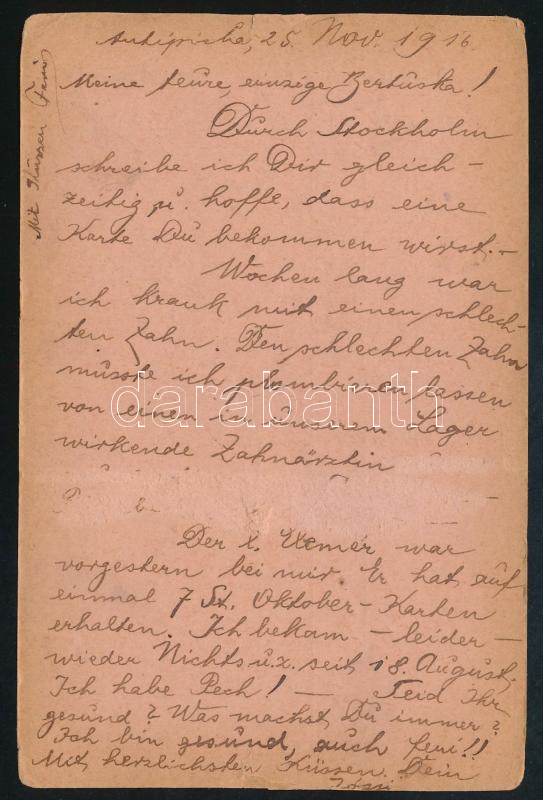 Antipicha, 25. Nov. 1916
Meine teure, einzige Bertuska!
Durch Stockholm
schreibe ich Dir gleich-
zeitig u. hoffe, dass eine
Karte Du bekommen wirst.-
Wochen lang war
ich krank mit einen schlech-
ten Zahn. Den schlechten Zahn
müsste ich plombieren lassen
von einen in unsrem Lager
wirkende Zahnärztin
Der l. Elemér war
vorgestern bei mir. Er hat auf
einmal 7 St. Oktober-Karten
erhalten. Ich bekam - leider -
wieder Nichts u.z. seit 18. August.
Ich habe Pech! - Seid Ihr
gesund? Was machst Du immer?
Ich bin gesund, auch feri!!
Mit herzlichsten Küssen Dein
Mit Küssen Feri
darabanth